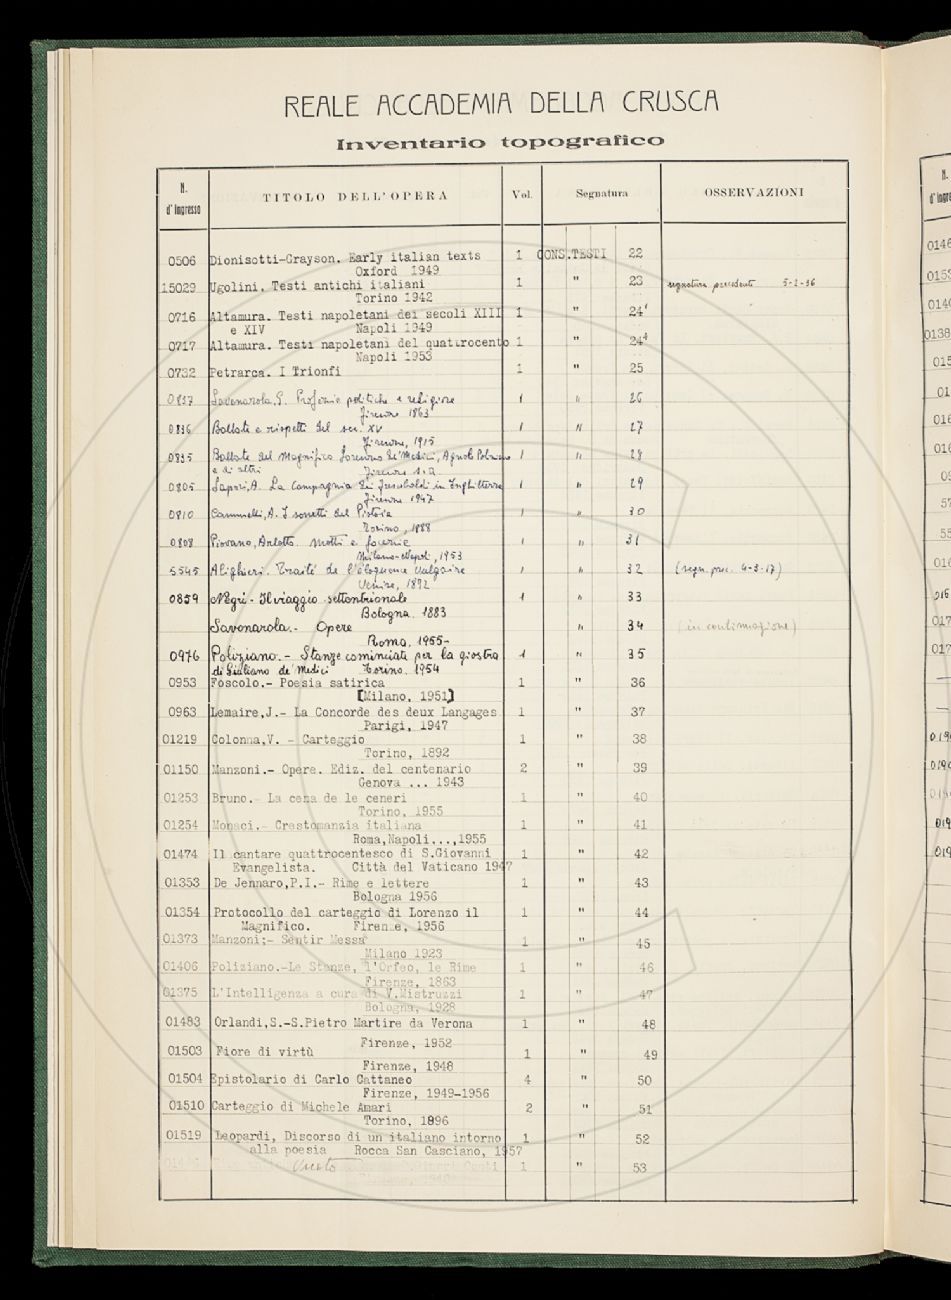 REALE ACCADEMIA DELLA CRUSCA
Inventario topografico
N. d'Ingresso TITOLO DELL'OPERA Vol. Segnatura OSSERVAZIONI
0506 Dionisotti-Grayson. Early italian texts 1 CONS.TESTI 22
Oxford 1949
15029 Ugolini. Testi antichi italiani 1 " 23 segnatura precedente 5-2-36
Torino 1942
0716 Altamura. Testi napoletani dei secoli XIII 1 " 24
e XIV Napoli 1949
0717 Altamura. Testi napoletani del quattrocento 1 " 24
Napoli 1953
0732 Petrarca. I Trionfi 1 " 25
0837 Savonarola, G. Profezie politiche e religiose 1 " 26
Firenze 1863
0836 Ballate e rispetti del sec. XV 1 " 27
Firenze, 1915
0835 Ballate del Magnifico Lorenzo de' Medici, Agnolo Poliziano 1 " 28
e di altri Firenze s.a.
0805 Sapori, A. La Compagnia dei Frescobaldi in Inghilterra 1 " 29
Firenze 1947
0810 Cammelli, A. I sonetti del Pistoia 1 " 30
Torino, 1888
0808 Piovano, Arlotto. Motti e facezie 1 " 31
Milano-Napoli, 1953
5545 Alighieri. Traité de l'éloquence vulgaire 1 " 32 (segn. prec. 4-3-17)
Venise, 1892
0859 Negri - Il viaggio settentrionale 1 " 33
Bologna. 1883
Savonarola.- Opere " 34 (in continuazione)
Roma, 1955-
0976 Poliziano.- Stanze cominciate per la giostra 1 " 35
di Giuliano de' Medici Torino. 1954
0953 Foscolo.- Poesia satirica 1 " 36
[Milano, 1951]
0963 Lemaire,J.- La Concorde des deux Langages 1 " 37
Parigi, 1947
01219 Colonna,V. - Carteggio 1 " 38
Torino, 1892
01150 Manzoni.- Opere. Ediz. del centenario 2 " 39
Genova ... 1943
01253 Bruno.- La cena de le ceneri 1 " 40
Torino, 1955
01254 Monaci.- Crestomanzia italiana 1 " 41
Roma,Napoli...,1955
01474 Il cantare quattrocentesco di S.Giovanni 1 " 42
Evangelista. Città del Vaticano 1947
01353 De Jennaro,P.I.- Rime e lettere 1 " 43
Bologna 1956
01354 Protocollo del carteggio di Lorenzo il 1 " 44
Magnifico. Firenze, 1956
01373 Manzoni:- Sentir Messa 1 " 45
Milano 1923
01406 Poliziano.-Le Stanze, l'Orfeo, le Rime 1 " 46
Firenze, 1863
01375 L'Intelligenza a cura di V.Mistruzzi 1 " 47
Bologna, 1928
01483 Orlandi,S.-S.Pietro Martire da Verona 1 " 48
Firenze, 1952
01503 Fiore di virtù 1 " 49
Firenze, 1948
01504 Epistolario di Carlo Cattaneo 4 " 50
Firenze, 1949-1956
01510 Carteggio di Michele Amari 2 " 51
Torino, 1896
01519 Leopardi, Discorso di un italiano intorno 1 " 52
alla poesia Rocca San Casciano, 1957
Vuoto 1 " 53